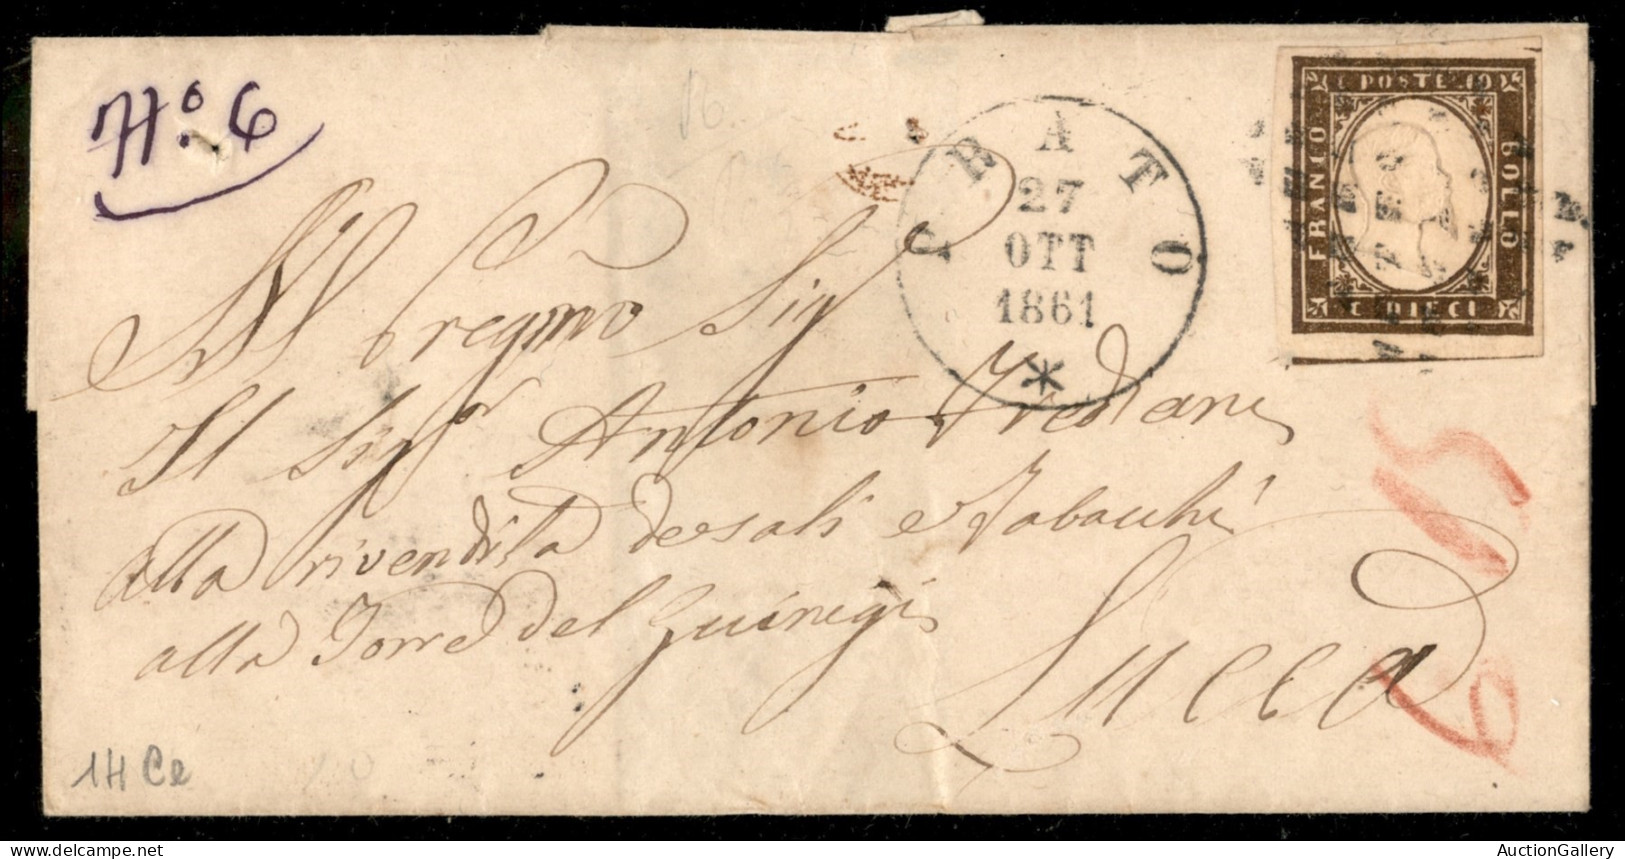 No. 6
PRATO
27
OTT
1861
*
C POSTE 10
FRANCO
BOLLO
C DIECI
Al Pregmo Sig
Il Sigr Antonio Frediani
alla rivendita de sali e Tabacchi
alla Torre del Guinegi
Lucca
15
6
14 Ce
AuctionGallery